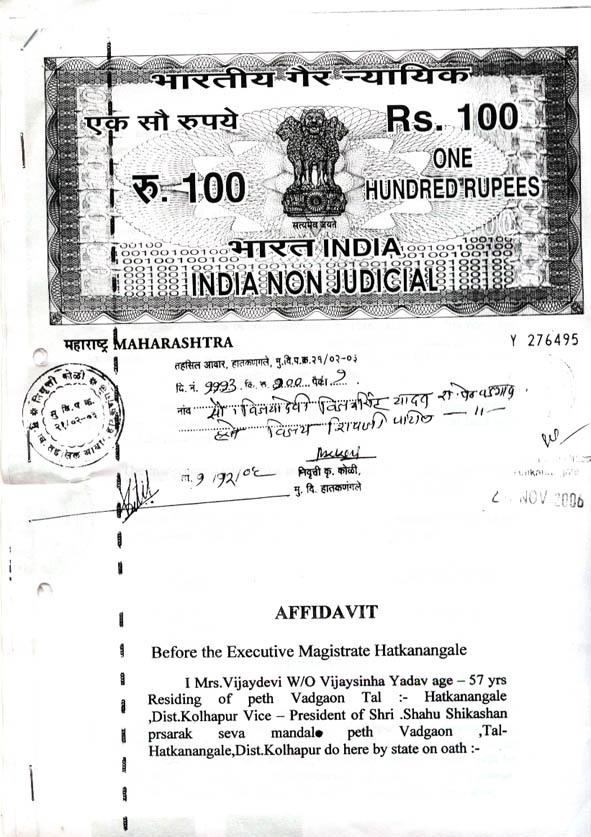 भारतीय गैर न्यायिक
एक सौ रुपये
Rs. 100
रु. 100
ONE
HUNDRED RUPEES
सत्यमेव जयते
भारत INDIA
INDIA NON JUDICIAL
महाराष्ट्र MAHARASHTRA
Y 276495
तहसिल आवार, हातकणंगले, मु.वि.प.क्र.२१/०२-०३
दि. नं. 9993 कि. रु. 900 पैकी 9
नांव सौ । विजयादेवी विजयसिंह यादव रा. पेठ वडगांव
हस्ते विजय शिवाजी पाटील —॥—
मु. वि. प. क्र.
२१/०२-०३
ता. 9/92/06
निवृत्ती कृ. कोळी,
मु. वि. हातकणंगले
NOV 2006
AFFIDAVIT
Before the Executive Magistrate Hatkanangale
I Mrs.Vijaydevi W/O Vijaysinha Yadav age – 57 yrs
Residing of peth Vadgaon Tal :- Hatkanangale
,Dist.Kolhapur Vice – President of Shri .Shahu Shikashan
prsarak seva mandal peth Vadgaon ,Tal-
Hatkanangale,Dist.Kolhapur do here by state on oath :-